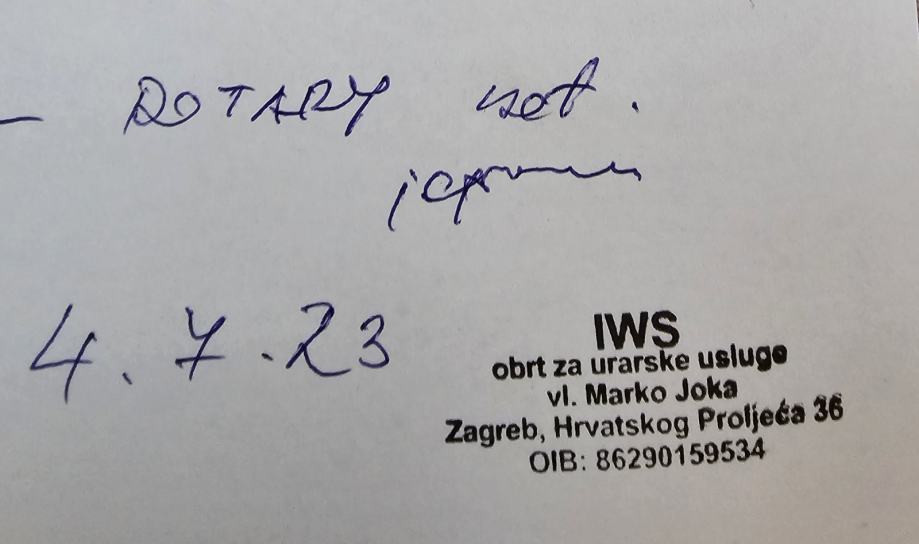 - ROTARY sat.
ispravan
4.7.23
IWS
obrt za urarske usluge
vl. Marko Joka
Zagreb, Hrvatskog Proljeća 36
OIB: 86290159534